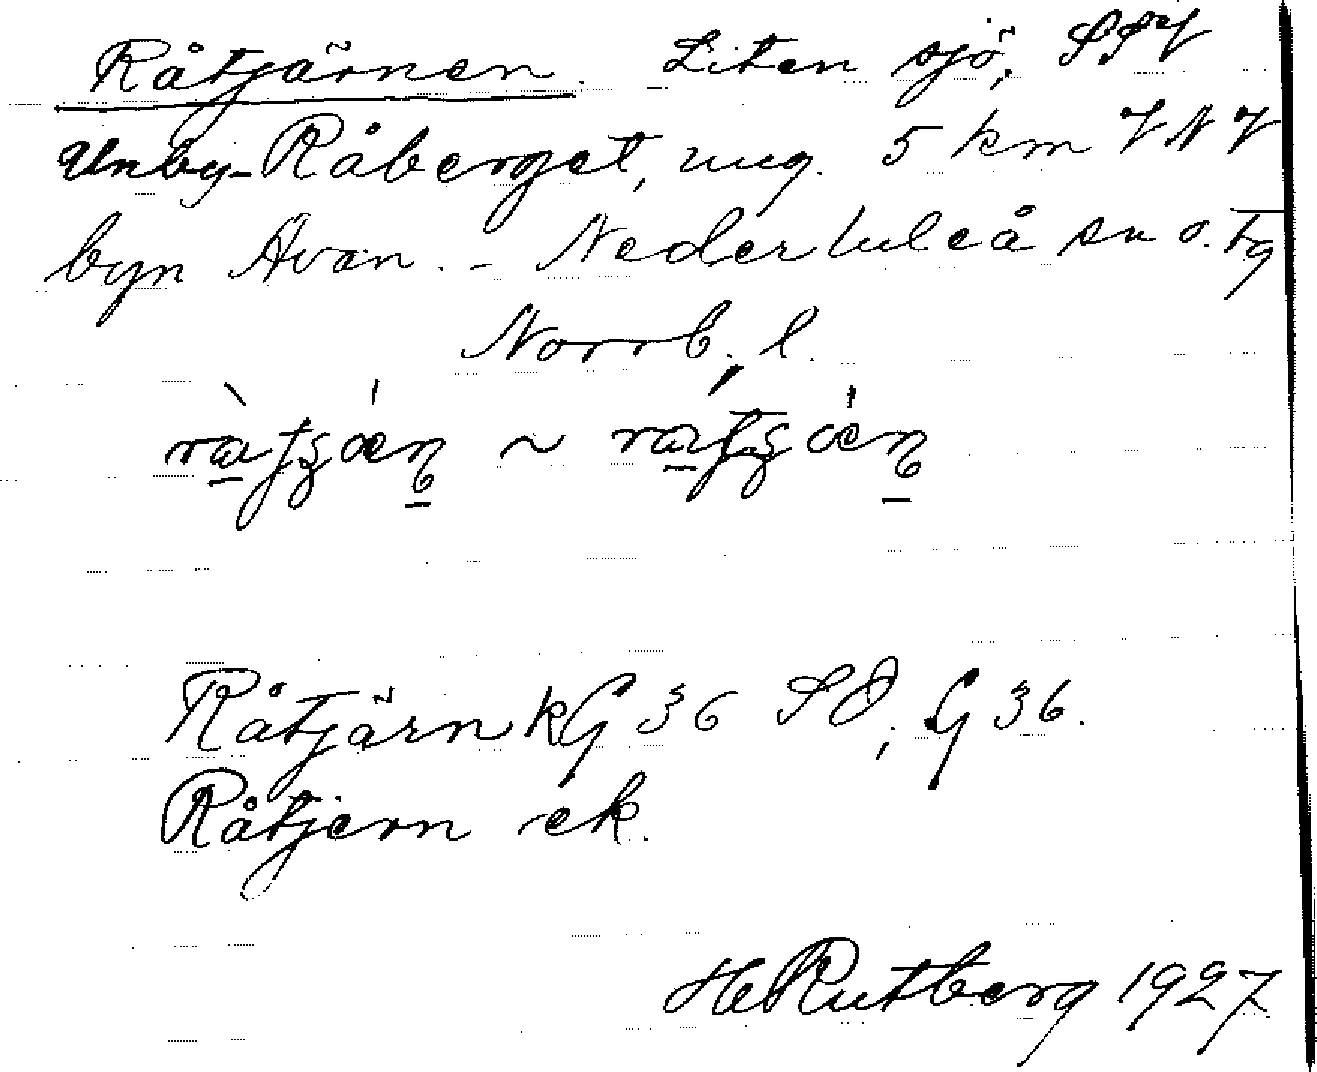 Råtjärnen. Liten sjö, SSV
Unby-Råberget, ung. 5 km VNV
byn Avan. - Nederluleå sn o. tg
Norrb. l.
Råtjärn kG 36 SO, G 36.
Råtjern ek.
H Rutberg 1927